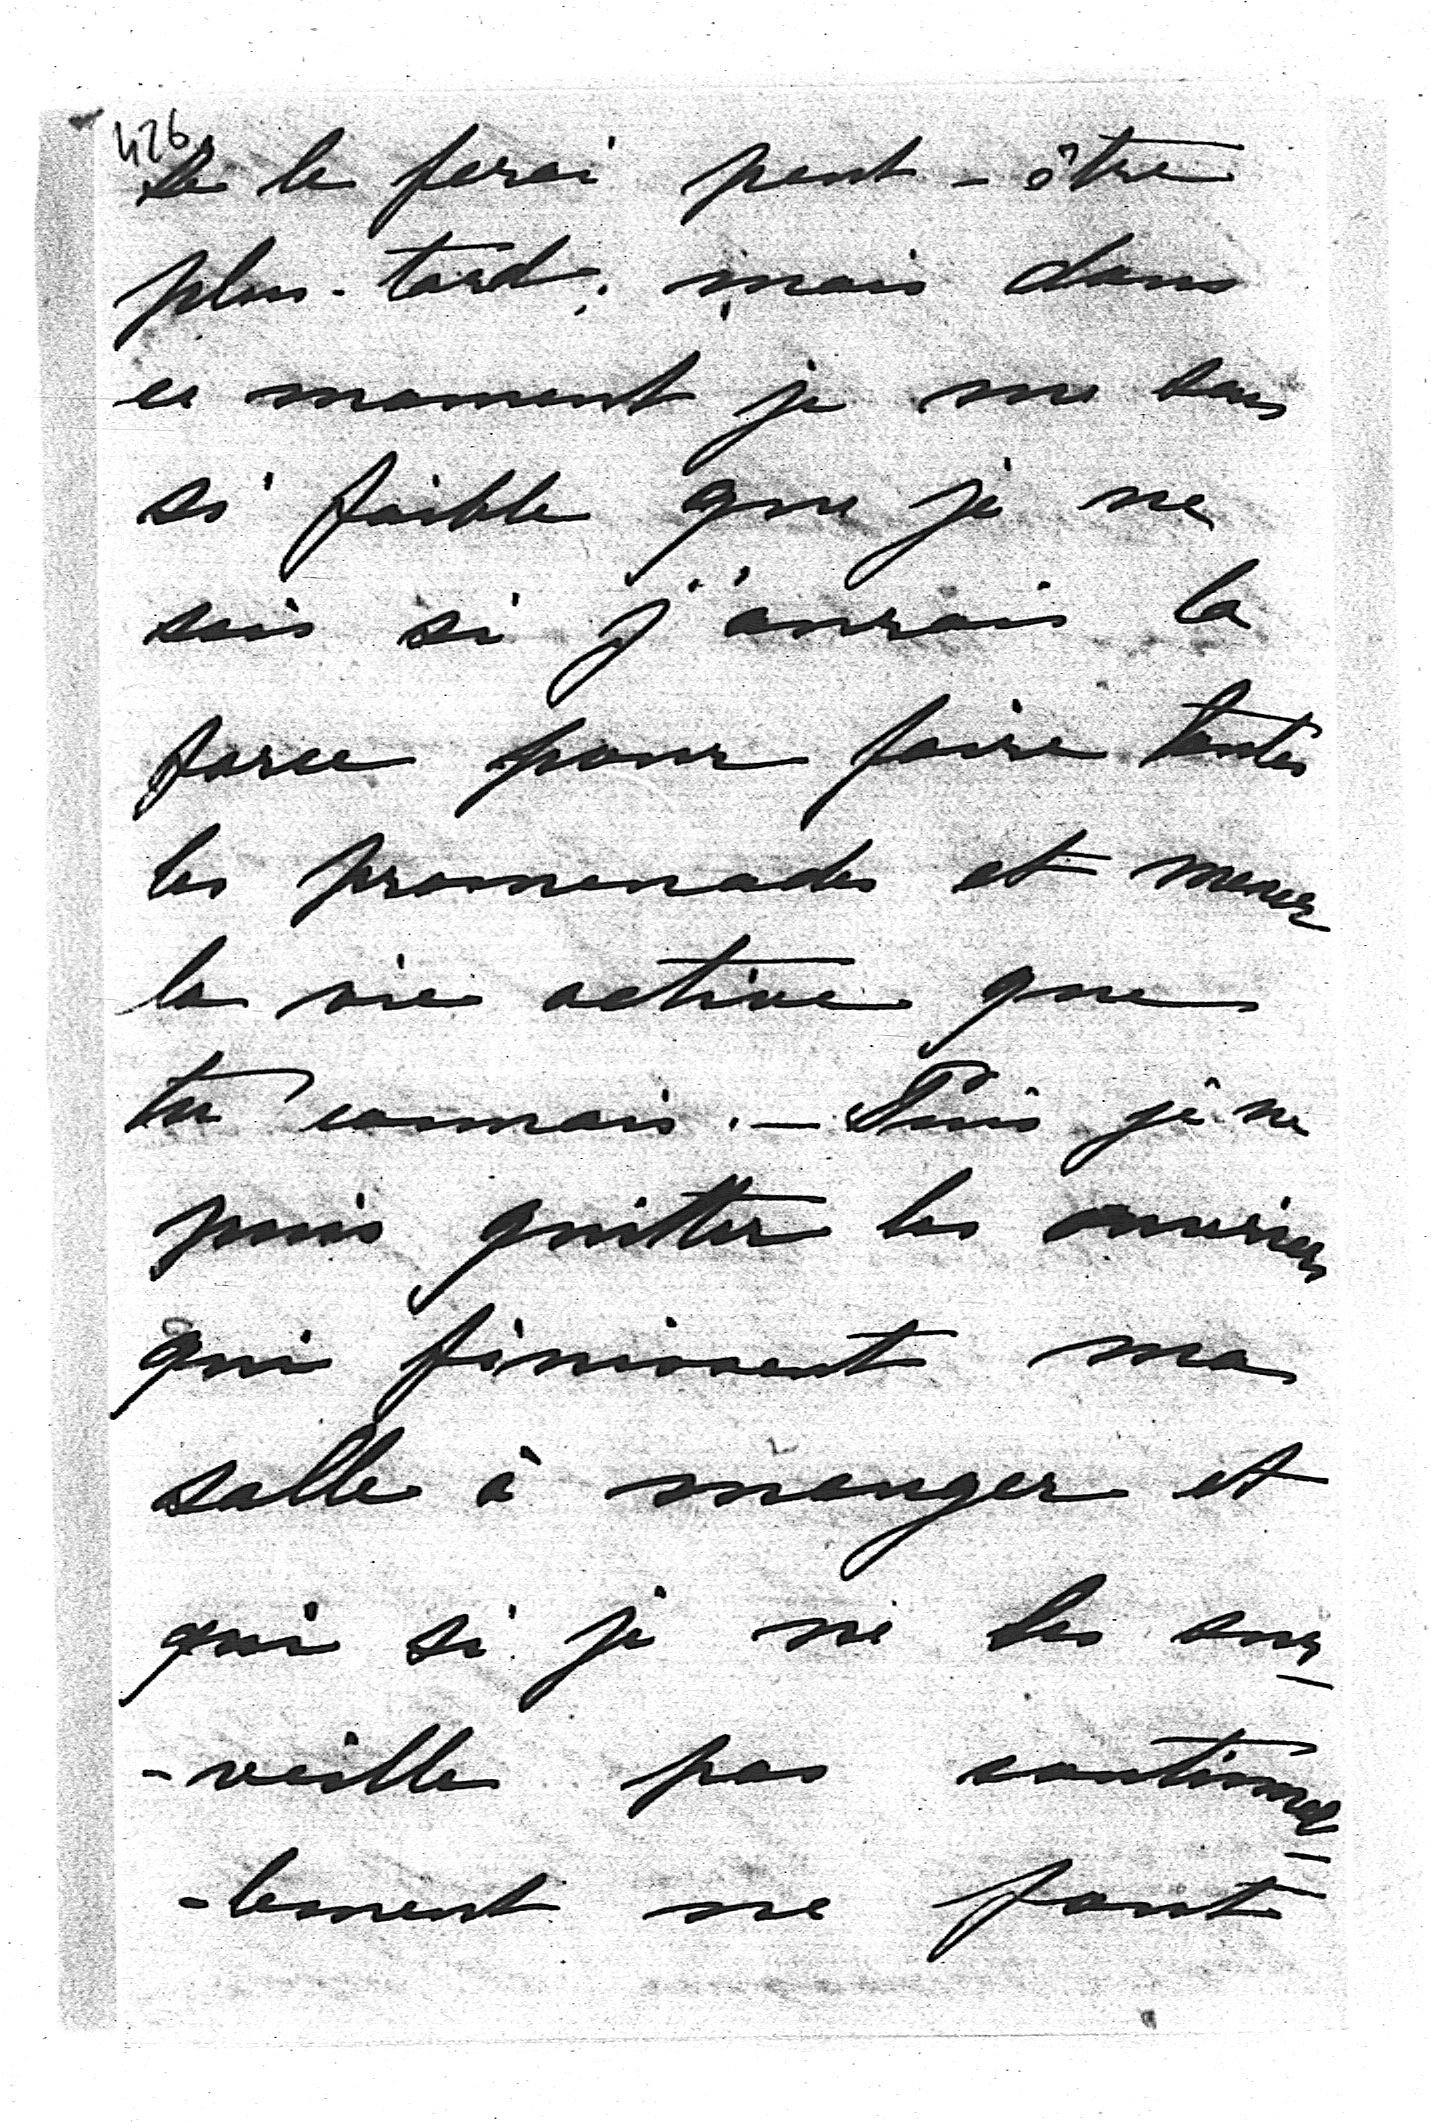 426
Je le ferai peut-être
plus-tard; mais dans
ce moment je me sens
si faible que je ne
sais si j'aurais la
force pour faire toutes
les promenades et mener
la vie active que
tu connais. — Puis je ne
puis quitter les ouvriers
qui finissent ma
salle à manger et
qui si je ne les sur-
-veille pas continuel-
-lement ne font